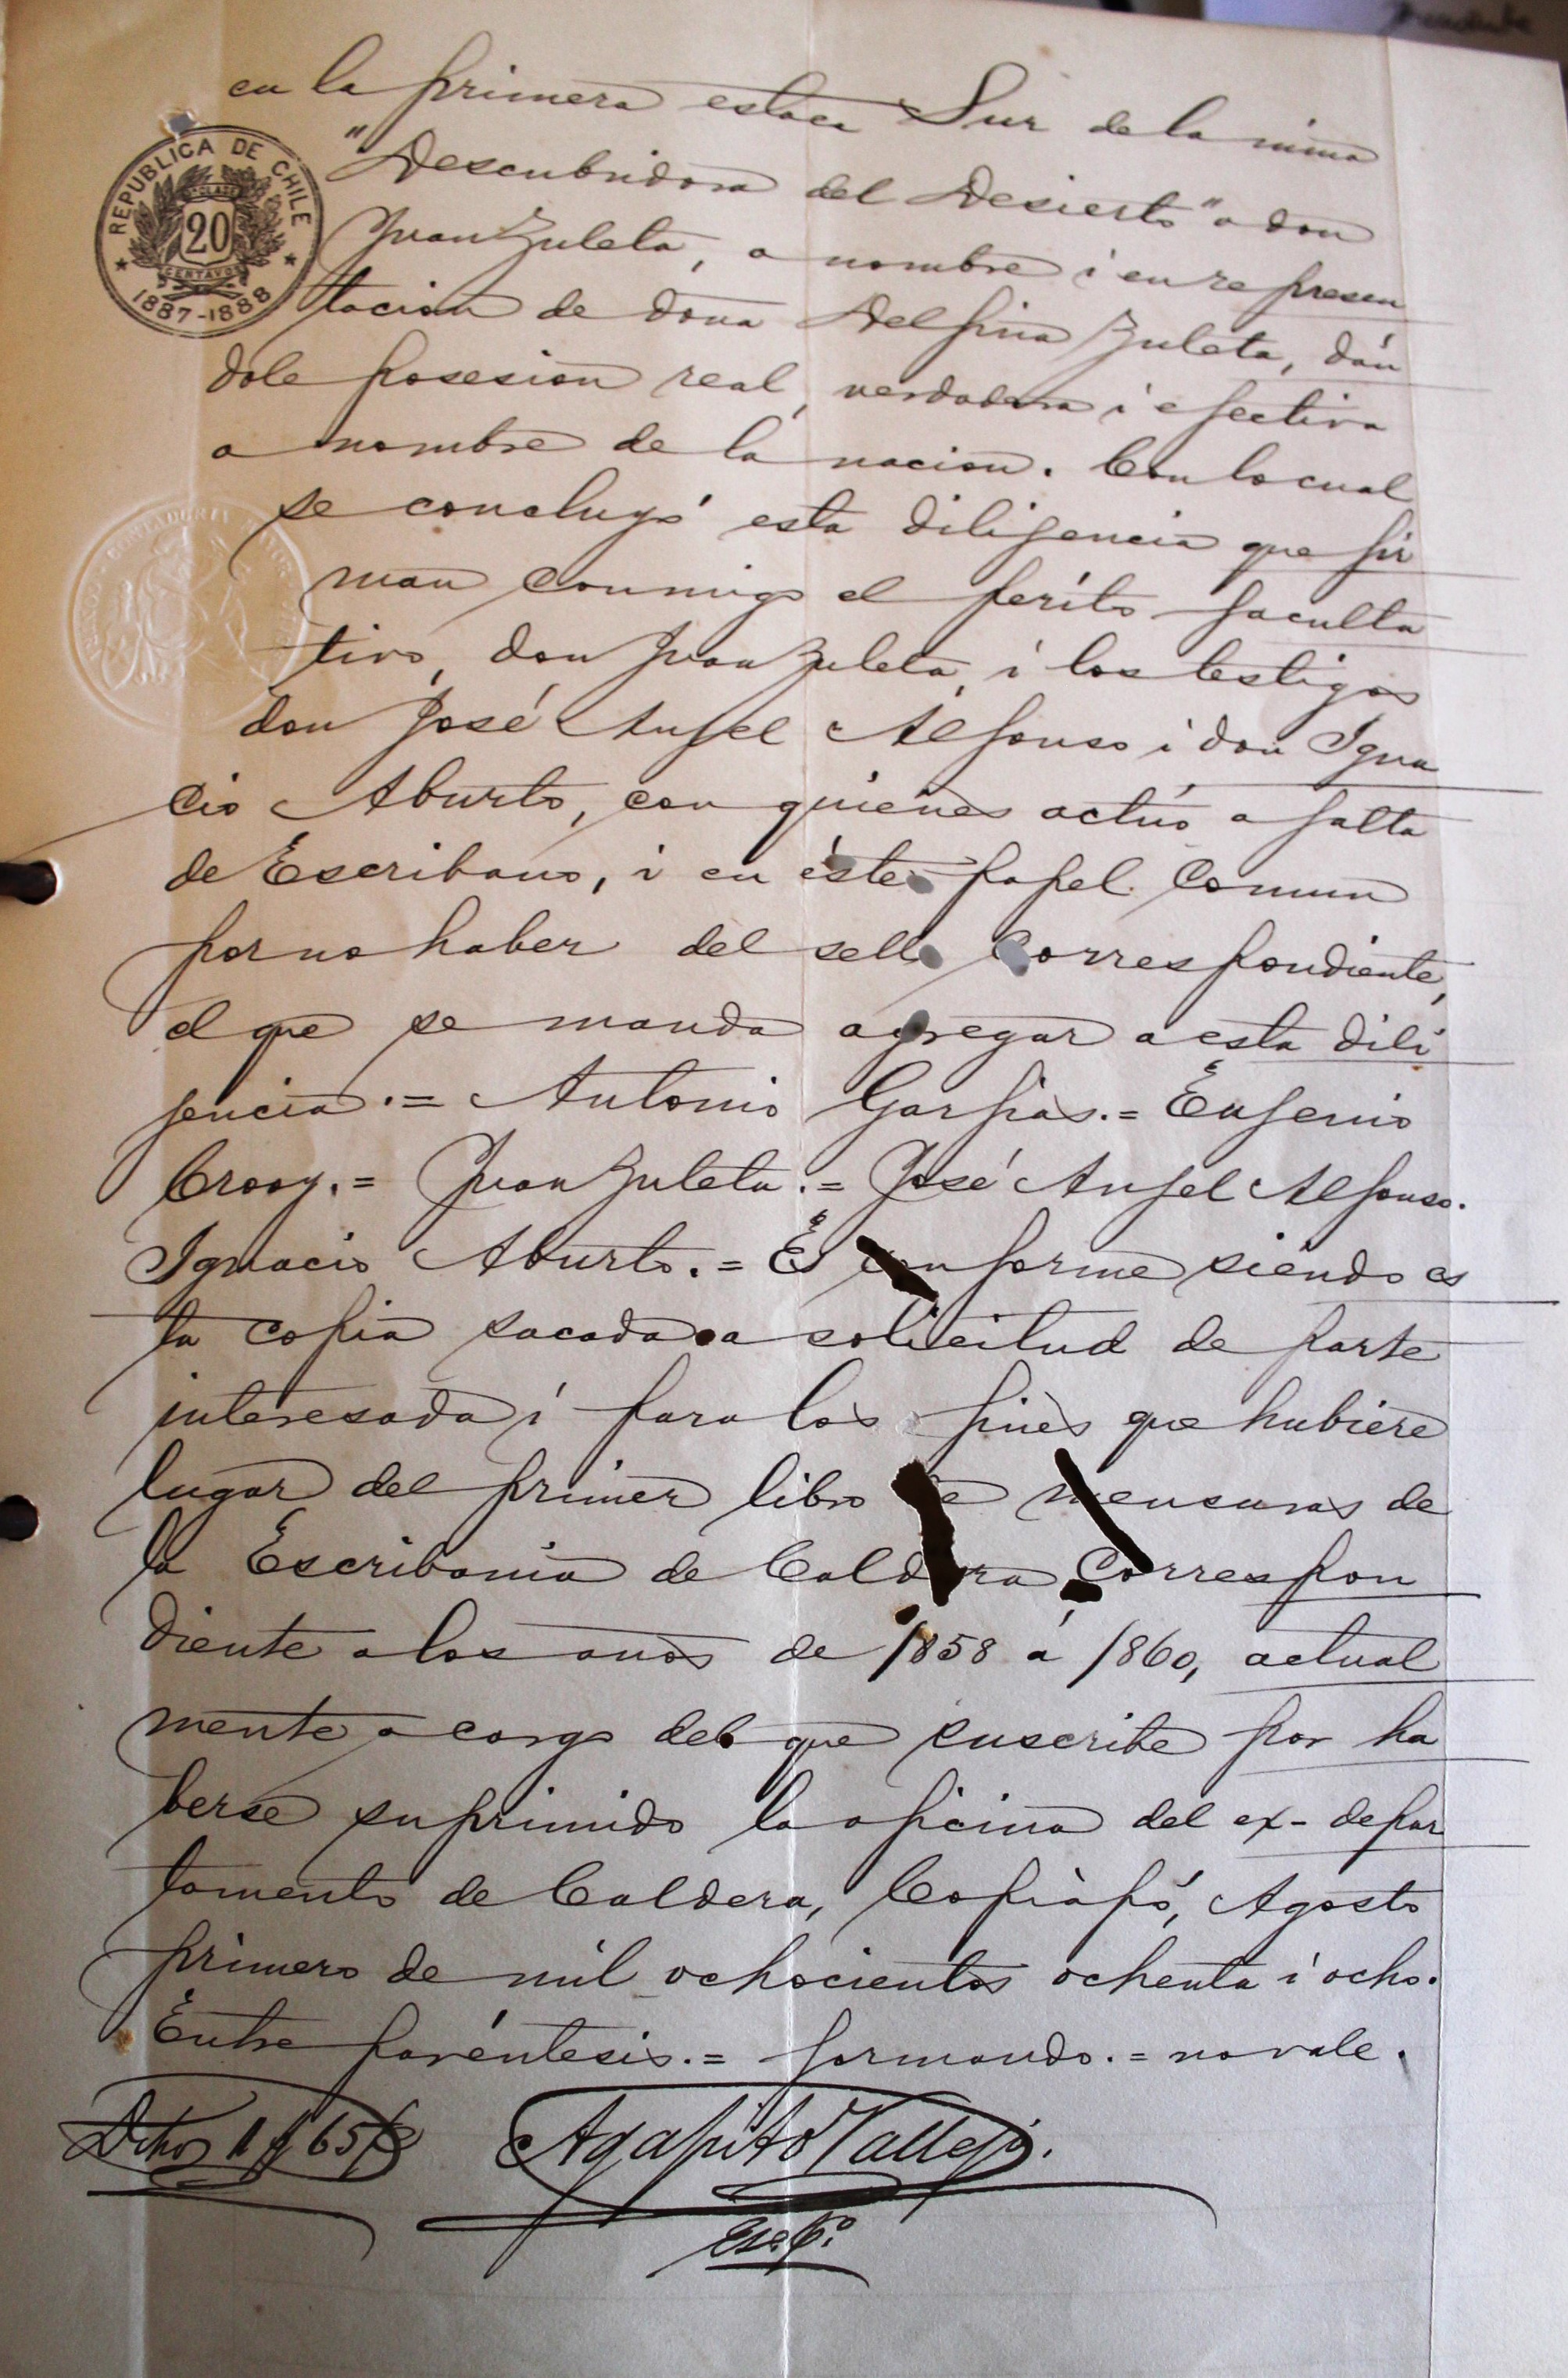 en la primera estaca Sur de la mina
"Descubridora del Desierto" a don
Juan Zuleta, a nombre i en represen
tacion de doña Delfina Zuleta, dán
dole posesion real, verdadera i efectiva
a nombre de la nacion. Con lo cual
se concluyó esta dilijencia que fir
man conmigo el perito faculta
tivo, don Juan Zuleta, i los testigos
don José Anjel Alfonso i don Igna
cio Aburto, con quienes actúo a falta
de Escribano, i en éste papel comun
por no haber del sello correspondiente,
el que se manda agregar a esta dili
jencia.= Antonio Garfias.= Eujenio
Crooy.= Juan Zuleta.= José Anjel Alfonso.
Ignacio Aburto.= Es conforme siendo es
ta copia sacada a solicitud de parte
interesada i para los fines que hubiere
lugar del primer libro de mensuras de
la Escribania de Caldera correspon
diente a los años de 1858 á 1860, actual
mente a cargo del que suscribe por ha
berse suprimido la oficina del ex-depar
tamento de Caldera, Copiapó, Agosto
primero de mil ochocientos ochenta i ocho.
Entre paréntesis.= formando.= no vale.
Agapito Vallejo.
REPUBLICA DE CHILE
20
CENTAVOS
1887-1888